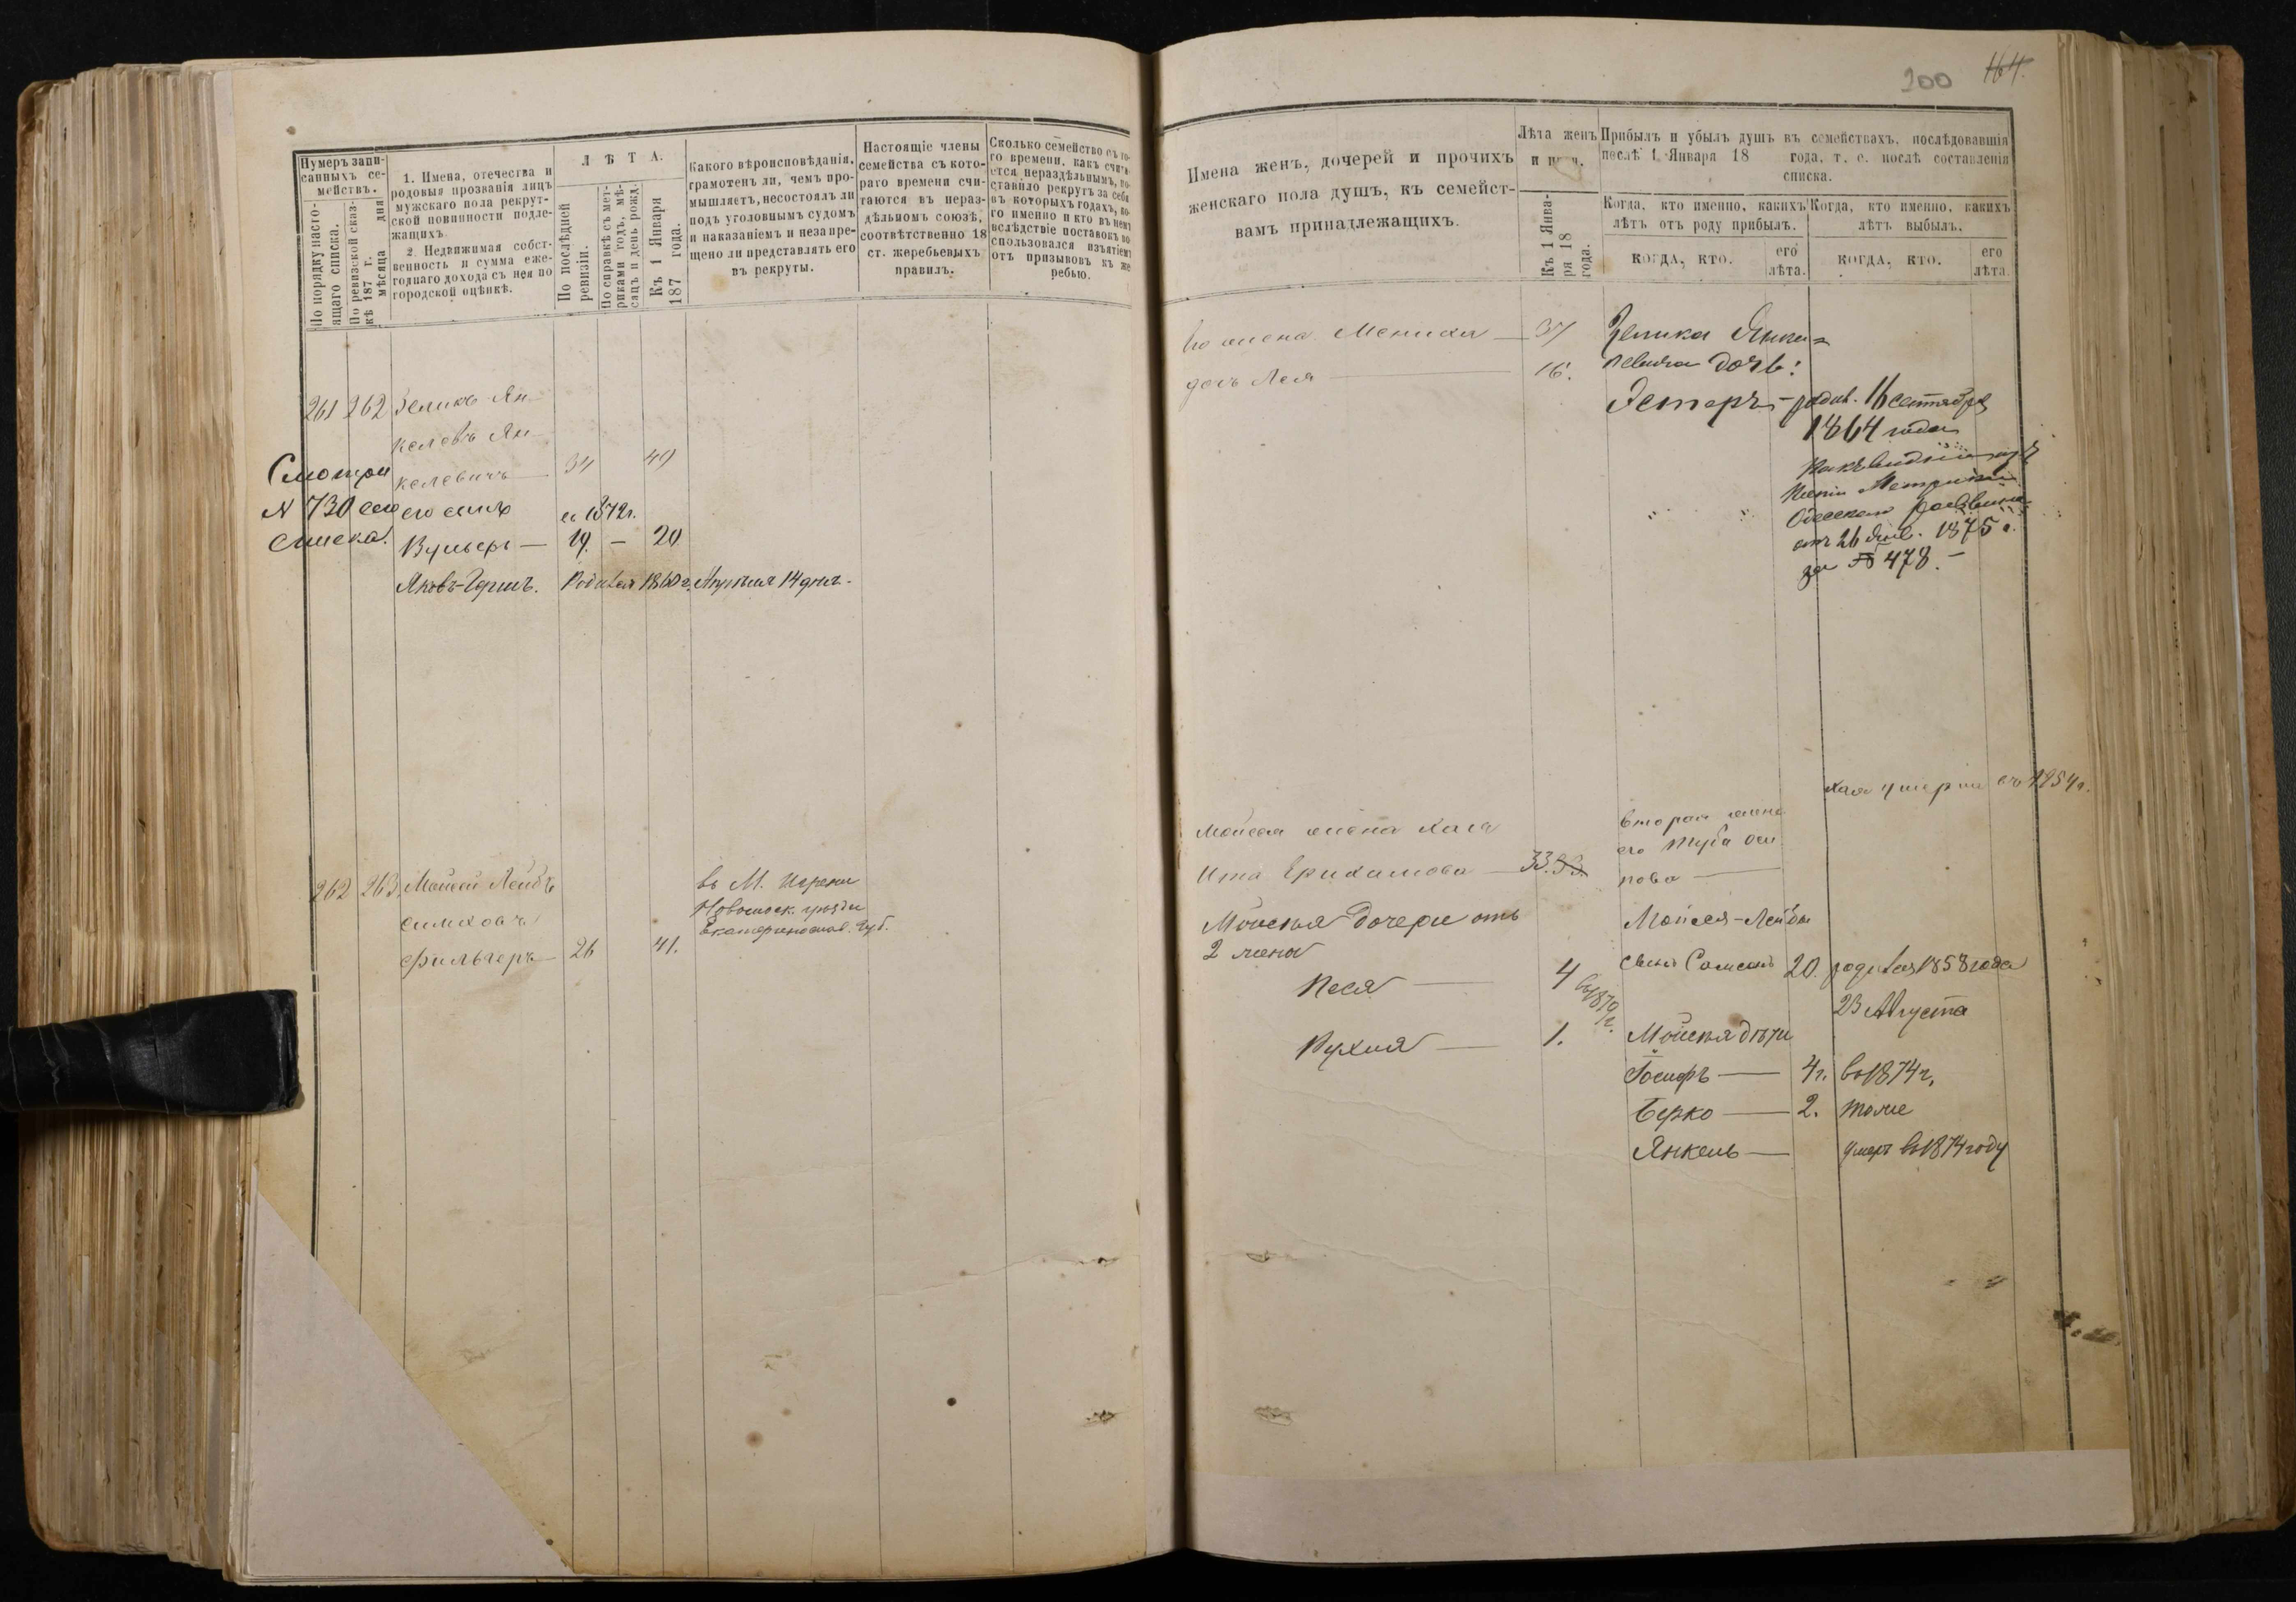 Нумеръ запи-
санныхъ се-
мействъ.
По порядку насто-
ящаго списка.
По ревизской сказ-
кѣ 187 г.
мѣсяца дня
1. Имена, отечества и
родовыя прозванія лицъ
мужскаго пола рекрут-
ской повинности подле-
жащихъ
2. Недвижимая собст-
венность и сумма еже-
годнаго дохода съ нея по
городской оцѣнкѣ.
ЛѢТА.
По послѣдней
ревизіи.
По справкѣ съ мет-
риками годъ, мѣ-
сяцъ и день рожд.
Къ 1 Января
187 года.
Какого вѣроисповѣданія,
грамотенъ ли, чемъ про-
мышляетъ, несостоялъ ли
подъ уголовнымъ судомъ
и наказаніемъ и незапре-
щено ли представлять его
въ рекруты.
Настоящіе члены
семейства съ кото-
раго времени счи-
таются въ нераз-
дѣльномъ союзѣ,
соотвѣтственно 18
ст. жеребьевыхъ
правилъ.
Сколько семейство съ то-
го времени, какъ счита-
ется нераздѣльнымъ, по-
ставило рекрутъ за себя
въ которыхъ годахъ, ко-
го именно и кто въ немъ
вслѣдствіе поставокъ во-
спользовался изъятіемъ
отъ призывовъ къ же
ребью.
261 262 Зеликъ Ян
келевъ Ян
келевичъ — 34 49
Смотри
N 730 сего
списка.
его сынъ въ 1872 г.
Вульфъ — 19. — 20
Яковъ-Гершъ. Родился 1860 г. Апрѣля 14 дня.
262 263. Мойсей Лейбъ
Симховъ
Фильгеръ — 26 41.
въ М. Игрени
Новомоск. уѣзда
Екатеринослав. Губ.
200 164.
Имена женъ, дочерей и прочихъ
женскаго пола душъ, къ семейст-
вамъ принадлежащихъ.
Лѣта женъ
Къ 1 Янва-
ря 18
года.
Прибыль и убыль душъ въ семействахъ, послѣдовавшія
послѣ 1 Января 18 года, т. е. послѣ составленія
списка.
Когда, кто именно, какихъ
лѣтъ отъ роду прибылъ.
КОГДА, КТО.
его
лѣта.
Когда, кто именно, какихъ
лѣтъ выбылъ.
КОГДА, КТО.
его
лѣта.
Его жена — 37
дочь Лея — 16.
Зелика Янке=
левича дочь:
Эстеръ — родив. 16 сентября
1864 года
отъ 26 1875 г.
за № 478. —
Хая умерла въ 1854 г.
Мойсея жена Хая
Ита — 33.
вторая жена
его
пова —
Мойсея дочери отъ
2 жены
Песя — 4 въ 1870 г.
Рухля — 1.
Мойсея-Лейбы
сынъ Самсонъ 20. родился 1858 года
23 Августа
Мойсея дѣти
Іосифъ — 4 г. въ 1874 г.
Берко — 2. тоже
Янкель — умеръ въ 1874 году